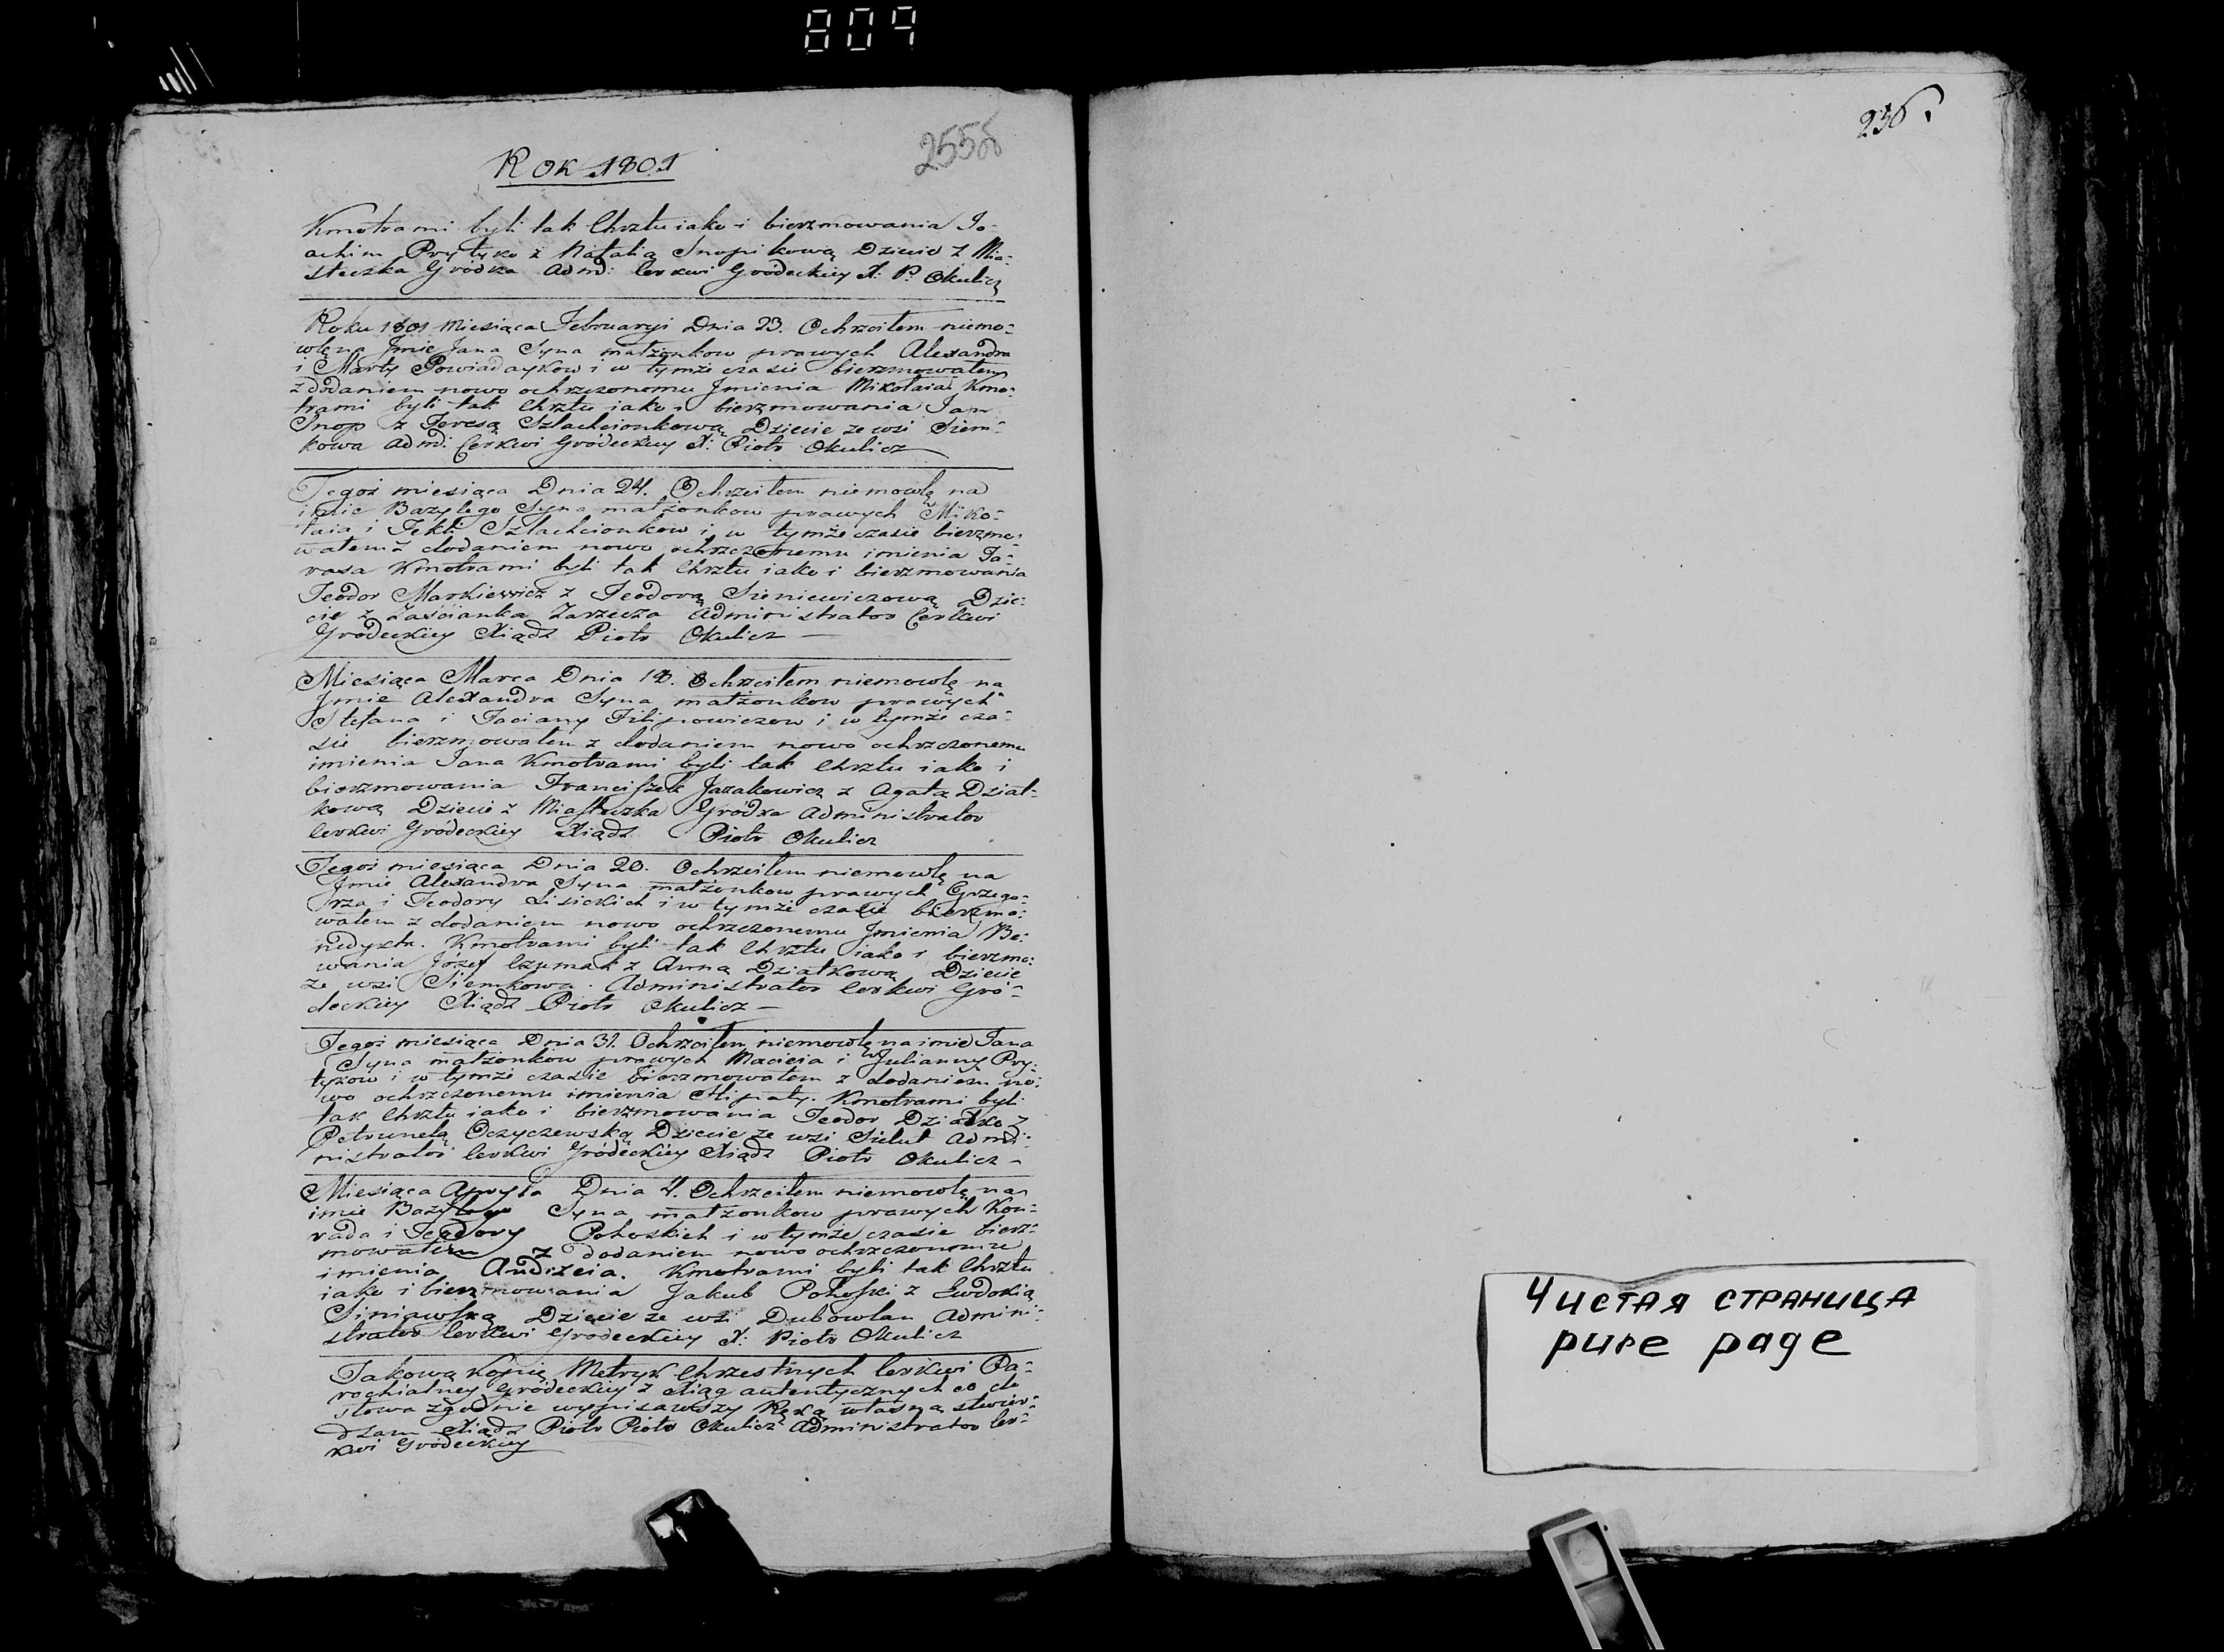 809
255об
Rok 1801
Kmotrami byli tak Chrztu iako i bierzmowania Jo-
achim Prytyko z Natalią Snopikową Dziecie z Mia-
steczka Gródka Adm: Cerkwi Gródeckiey X: P. Okulicz
Roku 1801 Miesiąca Februaryi Dnia 23. Ochrzciłem niemo-
wlę na Jmie Jana Syna małżonkow prawych Alexandra
i Marty Powiadaykow i w tymże czasie bierzmowałem
z dodaniem nowo ochrzczonemu Jmienia Mikołaia Kmo-
trami byli tak Chrztu iako i bierzmowania Jan
Snop z Teresą Szlachcionkową Dziecie ze wsi Siem-
kowa Adm: Cerkwi Gródeckiey X: Piotr Okulicz
Tegoż miesiąca Dnia 24. Ochrzciłem niemowlę na
imie Bazylego Syna małżonkow prawych Miko-
łaia i Tekli Szlachcionkow i w tymże czasie bierzmo-
wałem z dodaniem nowo ochrzczonemu imienia Ta-
rasa Kmotrami byli tak Chrztu iako i bierzmowania
Teodor Markiewicz z Teodorą Sieniewiczową Dzie-
cie z Zaścianka Zarzecza Administrator Cerkwi
Gródeckiey Xiądz Piotr Okulicz
Miesiąca Marca Dnia 18. Ochrzciłem niemowlę na
Jmie Alexandra Syna małżonkow prawych
Stefana i Taciany Filipowiczow i w tymże cza-
sie bierzmowałem z dodaniem nowo ochrzczonemu
imienia Jana Kmotrami byli tak Chrztu iako i
bierzmowania Franciszek Jazakowicz z Agatą Dział-
kową Dziecie z Miasteczka Gródka Administrator
Cerkwi Gródeckiey Xiądz Piotr Okulicz
Tegoż miesiąca Dnia 20. Ochrzciłem niemowlę na
Jmie Alexandra Syna małżonkow prawych Grzego-
rza i Teodory Lisickich i w tymże czasie bierzmo-
wałem z dodaniem nowo ochrzczonemu Jmienia Be-
nedykta. Kmotrami byli tak Chrztu iako i bierzmo-
wania Józef Czumak z Anną Działkową Dziecie
ze wsi Siemkowa. Administrator Cerkwi Gró-
deckiey Xiądz Piotr Okulicz
Tegoż miesiąca Dnia 31. Ochrzciłem niemowlę na imie Jana
Syna małżonkow prawych Macieia i Julianny Pry-
tykow i w tymże czasie bierzmowałem z dodaniem no-
wo ochrzczonemu imienia Hipaty. Kmotrami byli
tak Chrztu iako i bierzmowania Teodor Działko z
Petrunelą Oczyczewską Dziecie ze wsi Sielut Admi-
nistrator Cerkwi Gródeckiey Xiądz Piotr Okulicz
Miesiąca Apryla Dnia 4. Ochrzciłem niemowlę na
imie Bazylego Syna małżonkow prawych Kon-
rada i Teodory Pohoskich i w tymże czasie bierz-
mowałem z dodaniem nowo ochrzczonemu
imienia Andrzeia. Kmotrami byli tak Chrztu
iako i bierzmowania Jakub Pohoski z Ewdokią
Siniawską Dziecie ze wsi Dubowlan Admini-
strator Cerkwi Grodeckiey X: Piotr Okulicz
Takową kopię Metryk Chrzestnych Cerkwi Pa-
rochialney Gródeckiey z Xiąg autentycznych co do
słowa zgodnie wypisawszy Ręką własną stwier-
dzam Xiądz Piotr Piotr Okulicz Administrator Cer-
kwi Gródeckiey
256.
Чистая страница
pure page